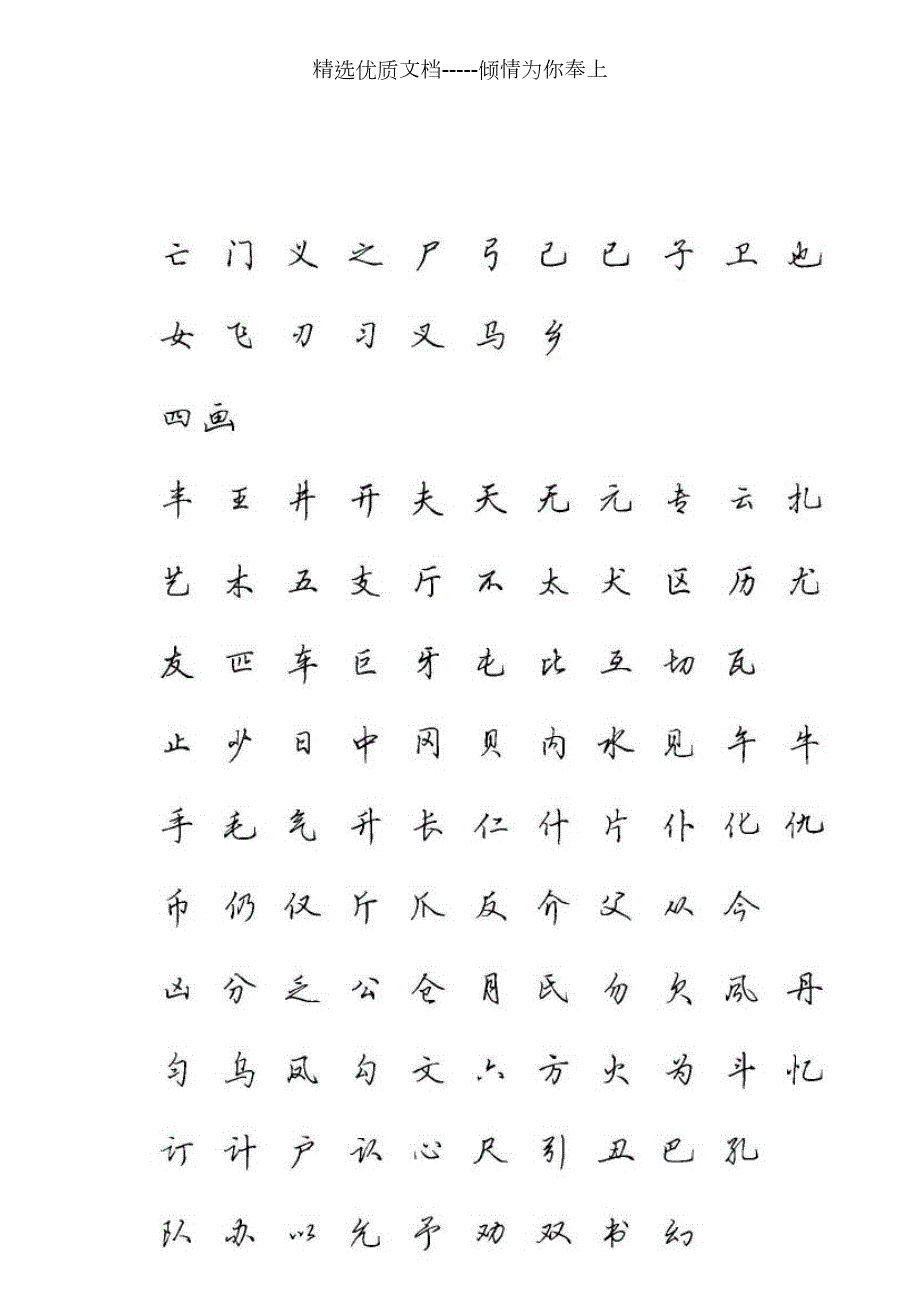 精选优质文档-----倾情为你奉上
亡 门 义 之 尸 弓 己 已 子 卫 也
女 飞 刃 习 叉 马 乡
四画
丰 王 井 开 夫 天 无 元 专 云 扎
艺 木 五 支 厅 不 太 犬 区 历 尤
友 匹 车 巨 牙 屯 比 互 切 瓦
止 少 日 中 冈 贝 内 水 见 午 牛
手 毛 气 升 长 仁 什 片 仆 化 仇
币 仍 仅 斤 爪 反 介 父 从 今
凶 分 乏 公 仓 月 氏 勿 欠 风 丹
匀 乌 凤 勾 文 六 方 火 为 斗 忆
订 计 户 认 心 尺 引 丑 巴 孔
队 办 以 允 予 劝 双 书 幻